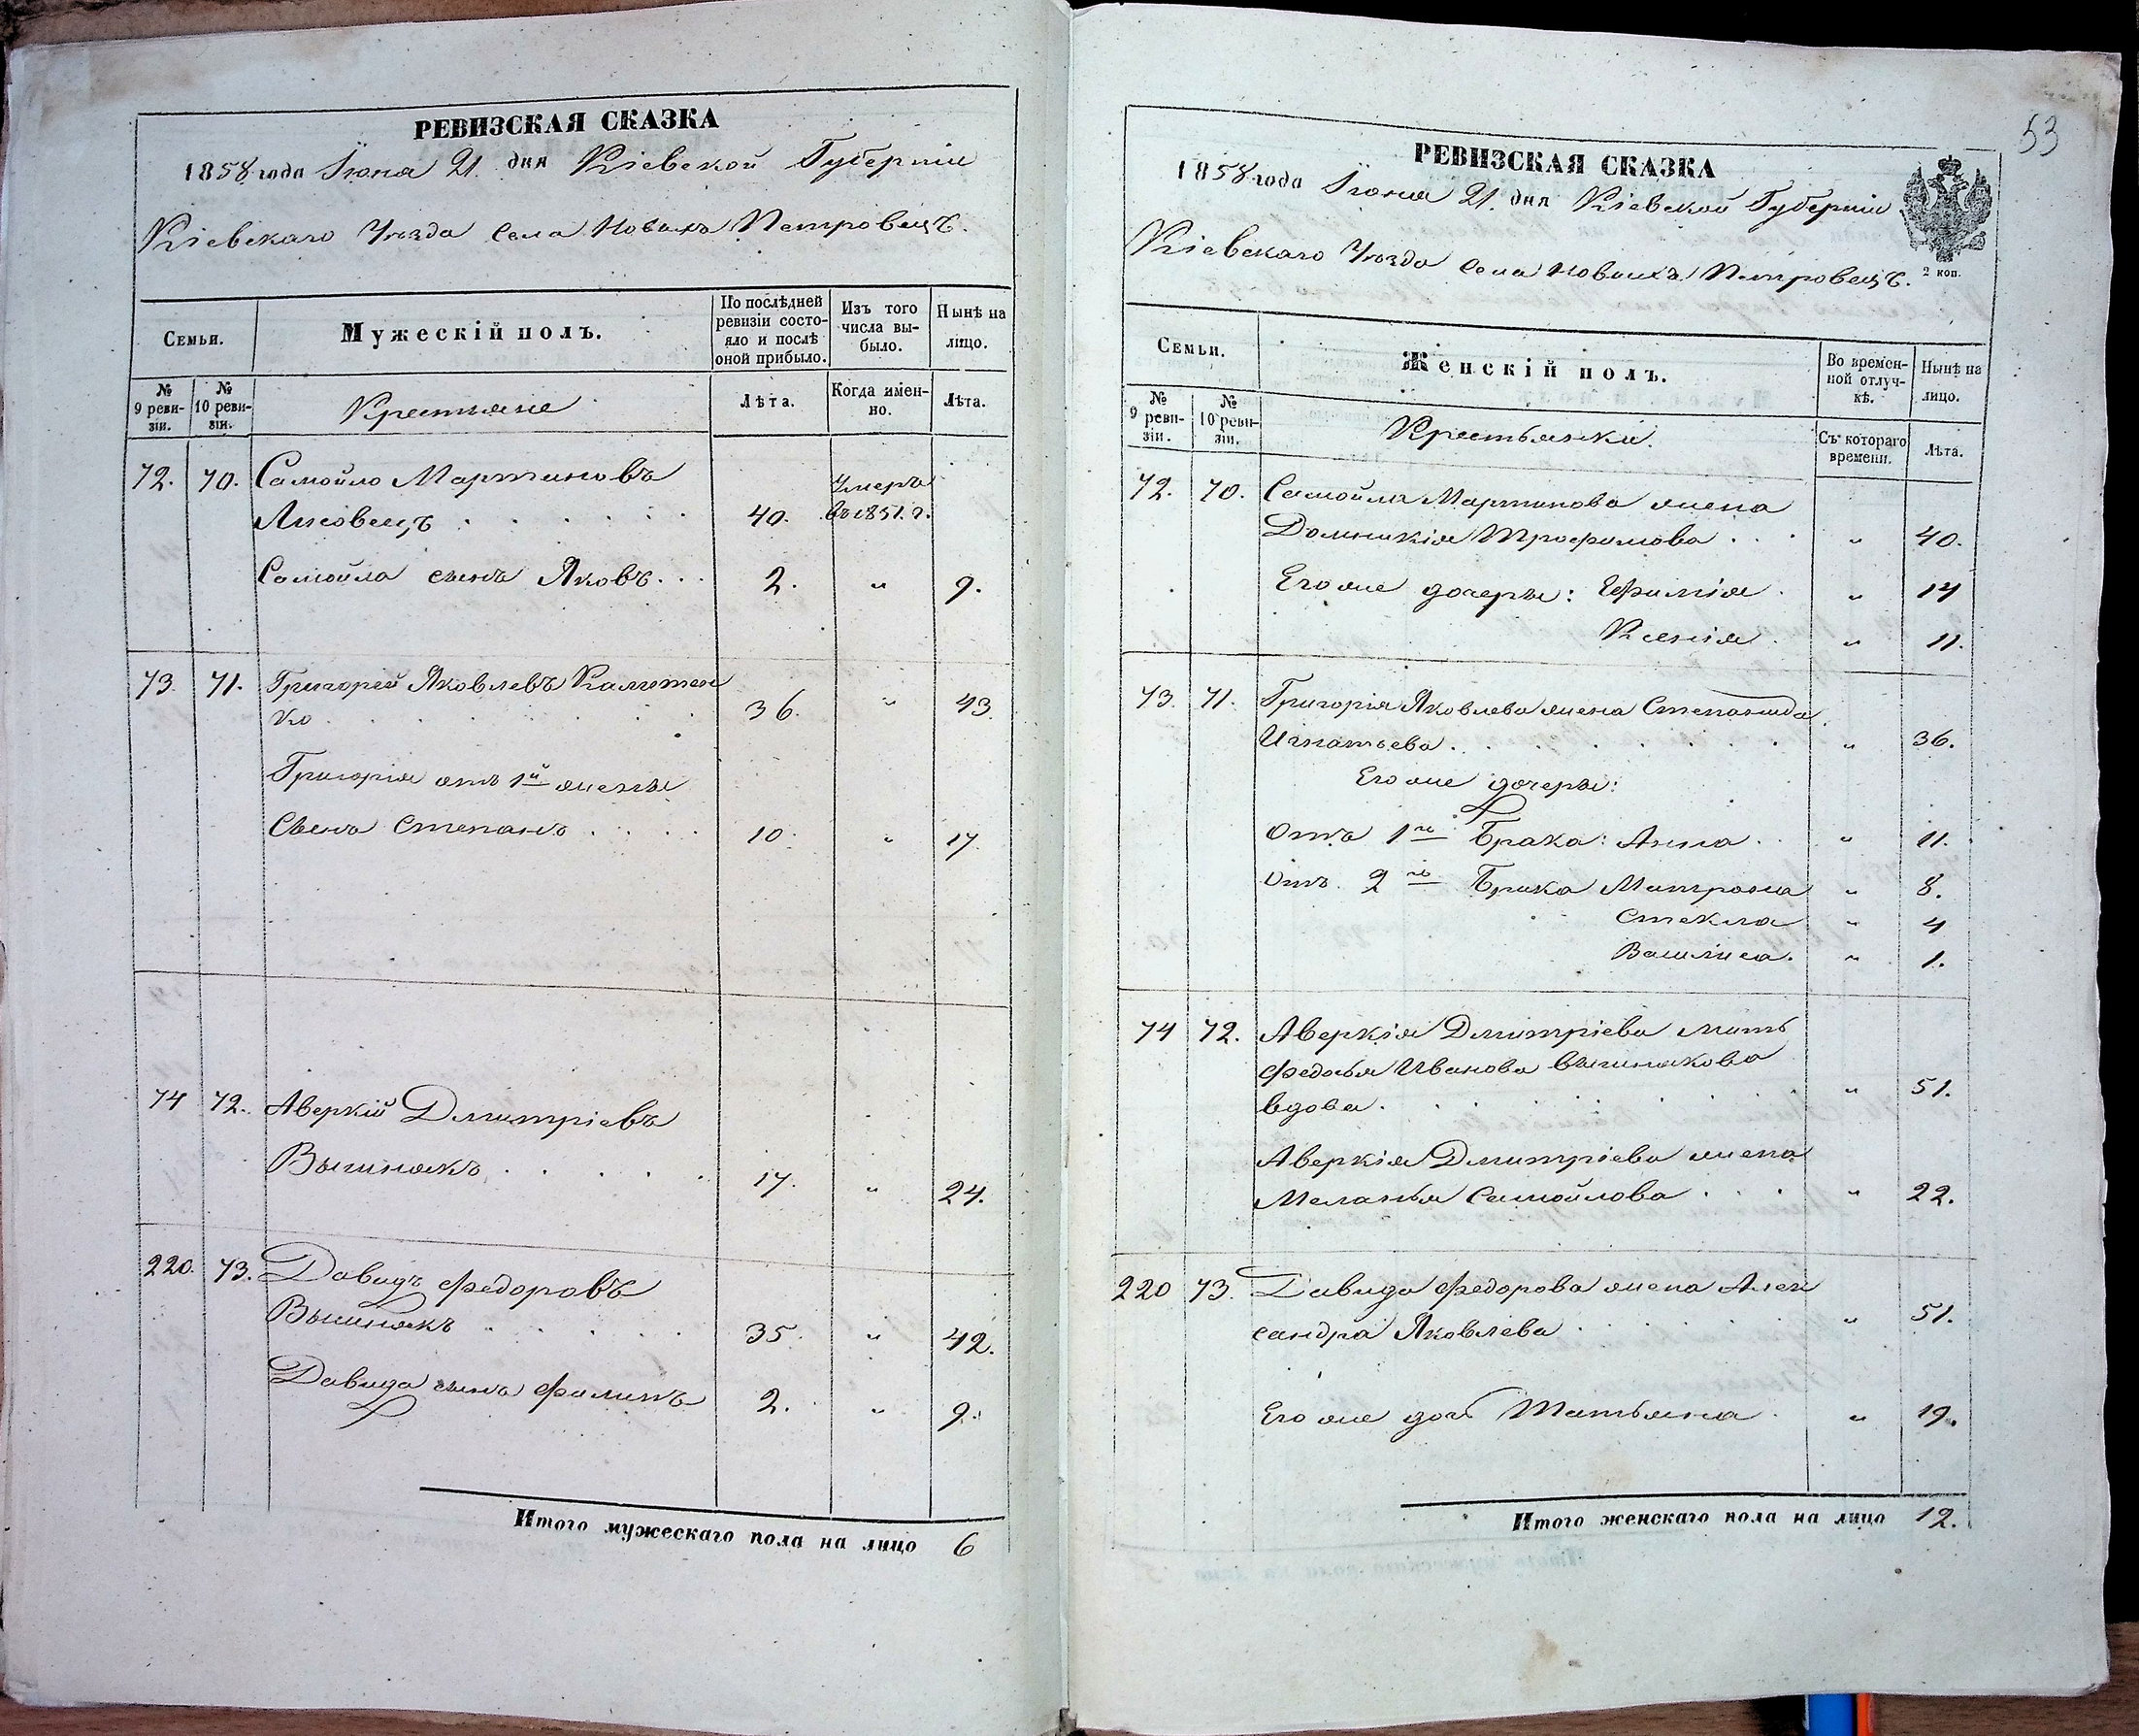 РЕВИЗСКАЯ СКАЗКА
1858 года Іюня 21. дня Кіевской Губерніи
Кіевскаго Уѣзда Села Новыхъ Петровецъ.
Семьи.
Мужескій полъ.
По послѣдней ревизіи состояло и послѣ оной прибыло.
Изъ того числа выбыло.
Нынѣ на лицо.
№ 9 ревизіи.
№ 10 ревизіи.
Крестьяне
Лѣта.
Когда именно.
Лѣта.
72. 70. Самойло Мартиновъ
Лисовецъ . . . . . . 40. Умеръ въ 1851. г.
Самойла сынъ Яковъ. . . 2. " 9.
73. 71. Григорей Яковлевъ
ко . . . . . . 36. " 43.
Григорія отъ 1й жены
Сынъ Степанъ . . . . 10. " 17.
74 72. Аверкій Дмитріевъ
Вышнякъ . . . . . 17. " 24.
220. 73. Давидъ Федоровъ
Вышнякъ . . . . . 35. " 42.
Давида сынъ Филипъ 2. " 9.
Итого мужескаго пола на лицо 6
53
РЕВИЗСКАЯ СКАЗКА
1858 года Іюня 21. дня Кіевской Губерніи
Кіевскаго Уѣзда Села Новыхъ Петровецъ.
2 коп.
Семьи.
Женскій полъ.
Во временной отлучкѣ.
Нынѣ на лицо.
№ 9 ревизіи.
№ 10 ревизіи.
Крестьянки.
Съ котораго времени.
Лѣта.
72. 70. Самойла Мартинова жена
Домникія Трофимова . . . " 40.
Его же дочери: Ефимія . " 14
Ксенія . " 11.
73. 71. Григорія Яковлева жена Степанида
Игнатьева. . . . . . . . " 36.
Его же дочери:
Отъ 1го Брака: Анна . . " 11.
Отъ 2го Брака Матрона " 8.
Стекла " 4
Василиса. " 1.
74 72. Аверкія Дмитріева мать
Федосья Иванова Вышнякова
вдова. . . . . . . . " 51.
Аверкія Дмитріева жена
Меланья Самойлова . . . " 22.
220 73. Давида Федорова жена Алек
сандра Яковлева . . . . . " 51.
Его же дочь Татьяна . " 19.
Итого женскаго пола на лицо 12.